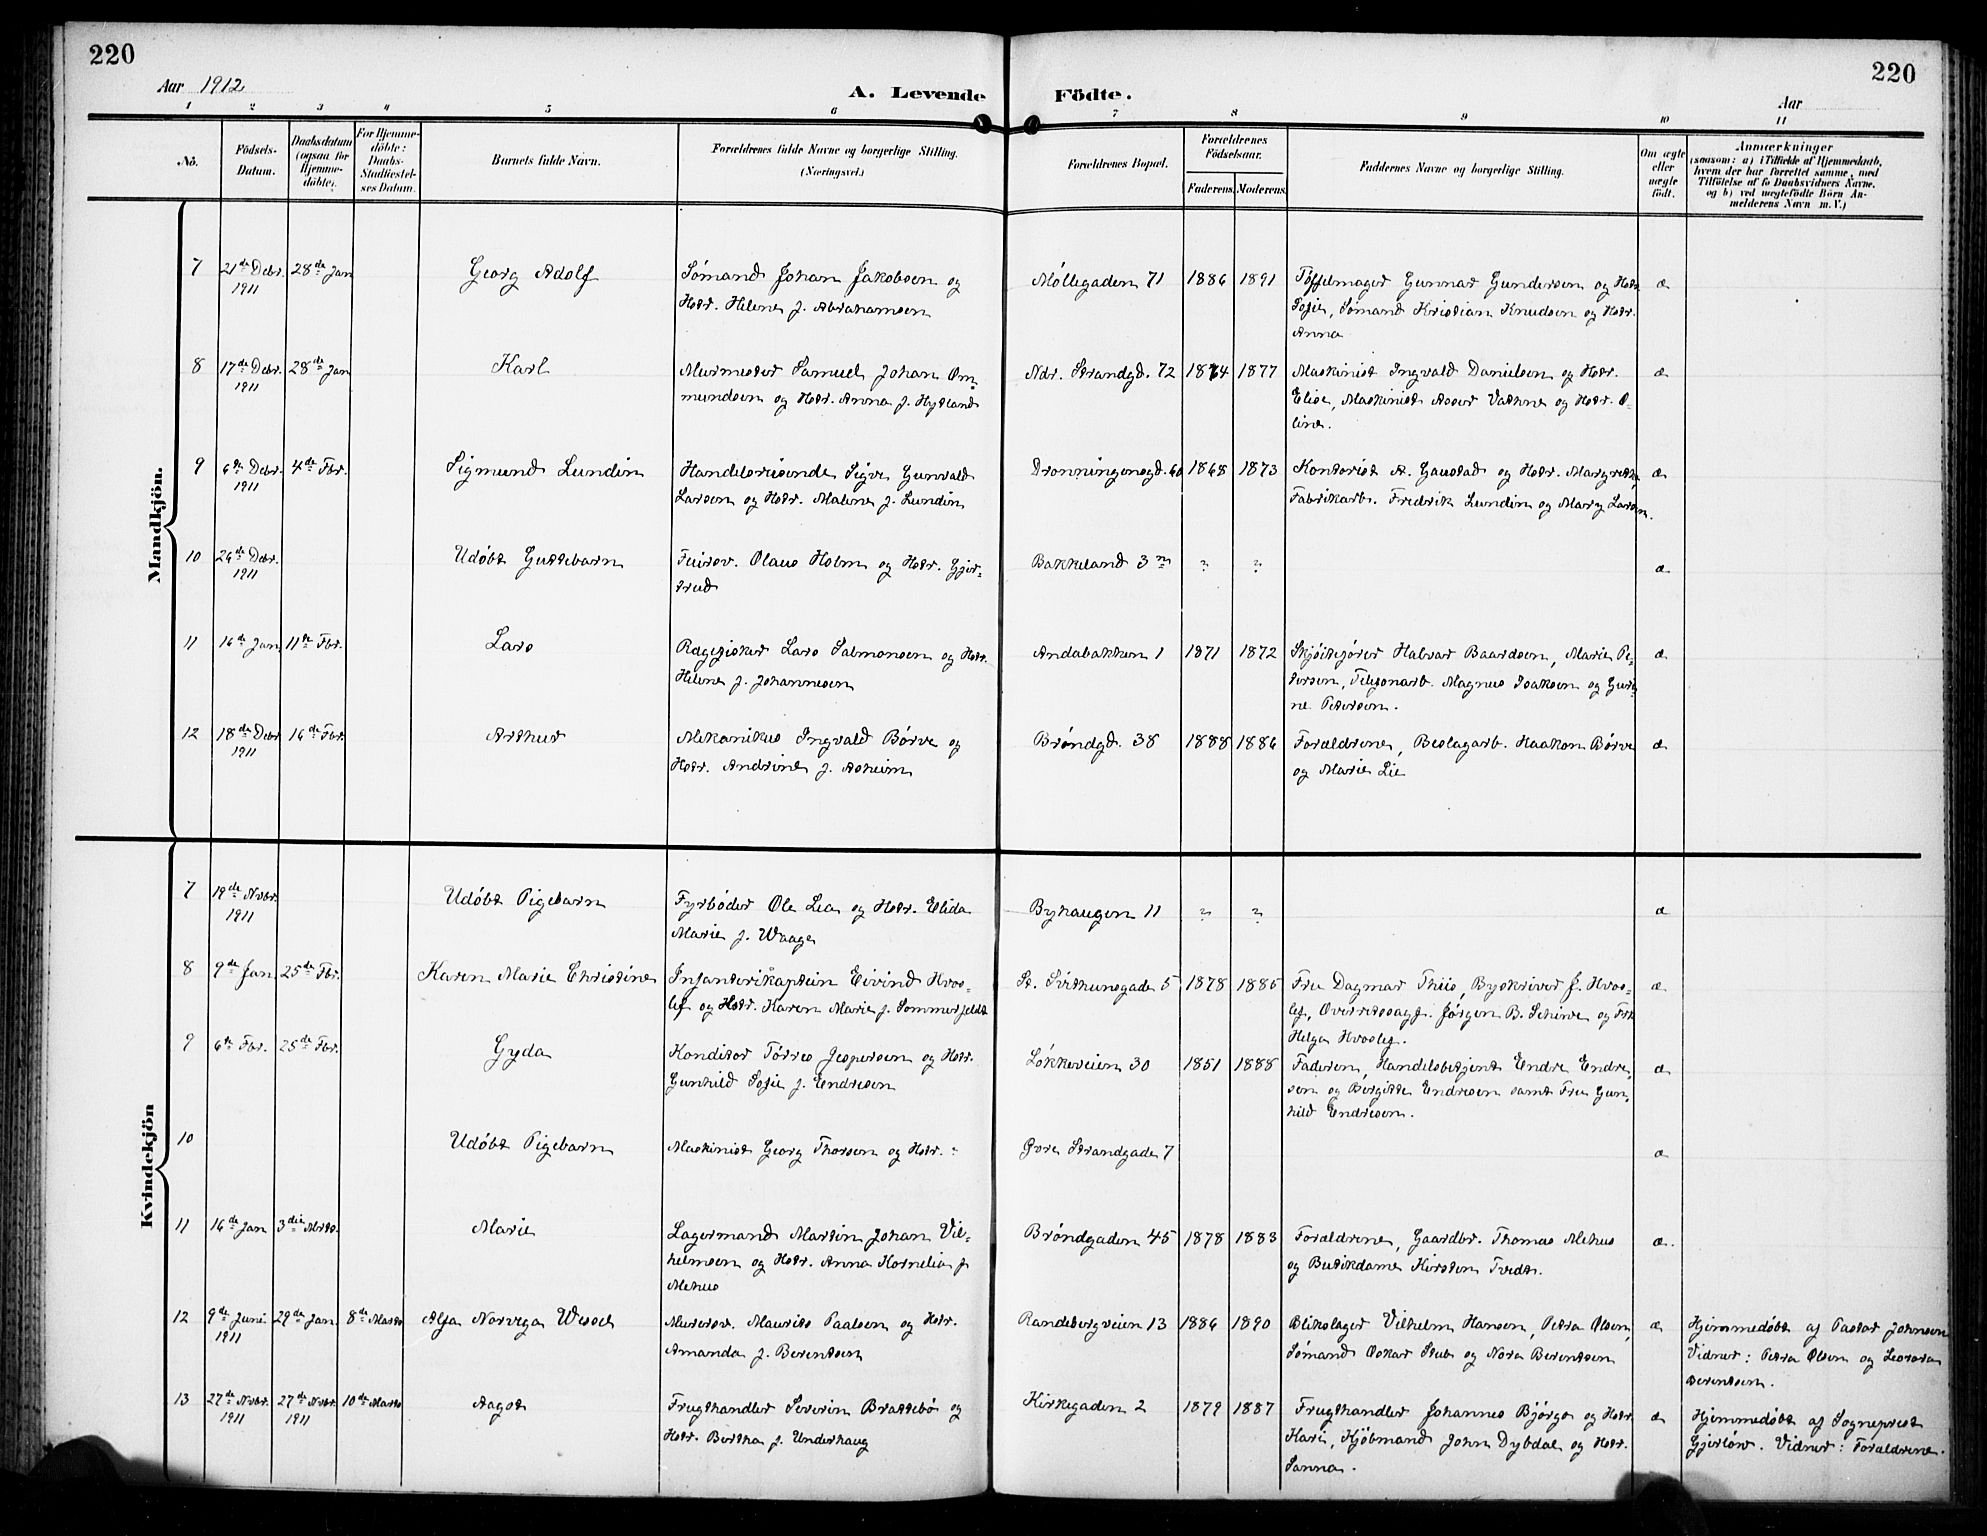 220
220
Aar 1912
A. Levende Födte.
Aar
1 2 3 4 5 6 7 8 9 10 11
No.
Födsels-Datum.
Daabsdatum (ogsaa for Hjemme-döbte).
For Hjemme-döbte: Daabs-Stadfæstel-ses Datum.
Barnets fulde Navn.
Forældrenes fulde Navne og borgerlige Stilling. (Næringsvei.)
Forældrenes Bopæl.
Forældrenes Födselsaar.
Faderens. Moderens.
Faddernes Navne og borgerlige Stilling.
Om ægte eller uægte födt.
Anmærkninger
(saasom: a) i Tilfælde af Hjemmedaab, hvem der har forrettet samme, med Tilföielse af to Daabsvidners Navne, og b) ved uægtefödte Börn An-melderens Navn m. V.)
Mandkjön.
7 21de Debr. 1911 28de Jan Georg Adolf Sømand Johan Jakobsen og Møllegaden 71 1886 1891 Tøffelmager Gunnar Gundersen og Hstr. æ
Hstr. Helene f. Abrahamsen Sofie, Sømand Kristian Knudsen og Hstr.
Anna
8 17de Debr. 1911 28de Jan Karl Murmester Samuel Johan Om- Ndr. Strandgd. 72 1874 1877 Maskinist Ingvald Danielsen og Hstr. æ
mundsen og Hstr. Anna f. Hytland Elise, Maskinist Asser Vathne og Hstr. O-
line.
9 6te Debr. 1911 4de Fbr. Sigmund Lundin Handelsreisende Sigve Gunvald Dronningensgd. 60 1868 1873 Kontorist A. Gaustad og Hstr. Margrethe, æ
Larsen og Hstr. Malene f. Lundin Fabrikarb. Fredrik Lundin og Mary Larsen.
10 26de Debr. 1911 Udøbt Guttebarn Feiersv. Olaus Holm og Hstr. Gjer- Bakkeland 3 ? ? æ
trud
11 16de Jan 11te Fbr. Lars Rugfisker Lars Salmonsen og Hstr. Andabakken 1 1871 1872 Halvar Baardsen, Marie Pe- æ
Helene f. Johannesen tersen, Telefonarb. Magnus Isaksen og Guri-
ne Petersen.
12 18de Debr. 1911 16de Fbr. Arthur Mekanikus Ingvald Børve og Brøndgd. 38 1888 1886 Forældrene, Beslagarb. Haakon Børve æ
Hstr. Andrine f. Asheim og Marie Lie
Kvindekjön
7 19de Nvbr. 1911 Udøbt Pigebarn Fyrbøder Ole Lea og Hstr. Elida Byhaugen 11 ? ? æ
Marie f. Waage
8 9de Jan 25de Fbr. Karen Marie Christine Infanterikaptein Eivind Hvos- St. Svithunsgade 5 1878 1885 Fru Dagmar Thiis, Byskriver J. Hvos- æ
lef og Hstr. Karen Marie f. Sommerfeldt lef, Overretssagf. Jørgen B. Schive og Frk
Helga Hvoslef.
9 6te Fbr. 25de Fbr. Gyda Konditor Tørres Jespersen og Hstr. Løkkeveien 30 1851 1888 Faderen, Handelsbetjent Endre Endre- æ
Gunhild Sofie f. Endresen sen og Bergitte Endresen samt Fru Gun-
hild Endresen.
10 Udøbt Pigebarn Maskinist Georg Thorsen og Hstr. ? Øvre Strandgade 7 æ
11 16de Jan 3die Marts. Marie Lagermand Martin Johan Vil- Brøndgaden 45 1878 1883 Forældrene, Gaardbr. Thomas Mehus æ.
helmsen og Hstr. Anna Kornelia f. og Butikdame Kirsten Tvedt.
Mehus
12 9de Juni 1911 29de Jan 8de Marts Alfa Norvega Wessel Murersv. Mauritz Paulsen og Hstr. Randebergveien 13 1886 1890 Blikslager Vilhelm Hansen, Petra Olsen, æ Hjemmedøbt af Pastor Johnsen
Amanda f. Berentsen Sømand Oskar Stub og Nora Berentsen Vidner: Petra Olsen og Leonora
Berentsen.
13 27de Nvbr. 1911 27de Nvbr. 1911 10de Marts Aagot Frugthandler Severin Brattebø og Kirkegaden 2 1879 1887 Frugthandler Johannes Bjørgo og Hstr. æ Hjemmedøbt af Sogneprest
Hstr. Bertha f. Underhaug Kari, Kjøbmand John Dybdal og Hstr. Gjerløw. Vidner: Forældrene.
Sanna.